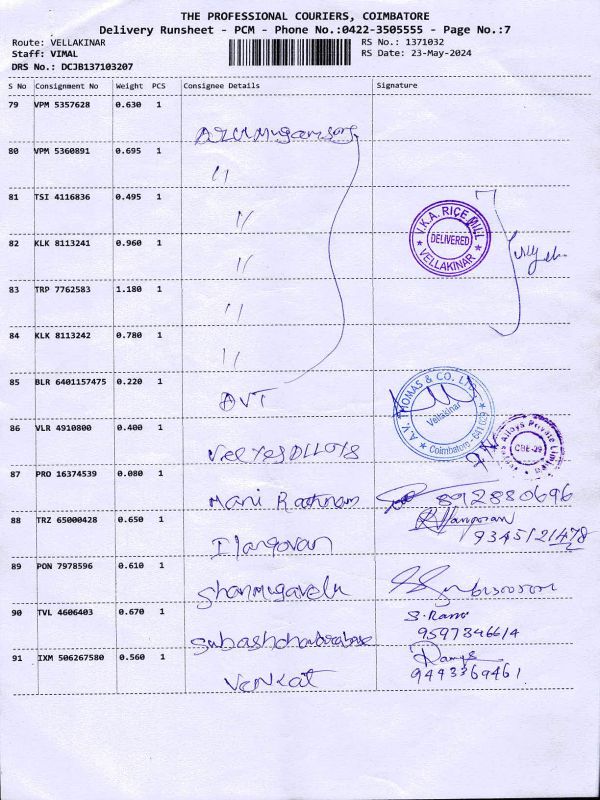 THE PROFESSIONAL COURIERS, COIMBATORE
Delivery Runsheet - PCM - Phone No.:0422-3505555 - Page No.:7
Route: VELLAKINAR RS No.: 1371032
Staff: VIMAL RS Date: 23-May-2024
DRS No.: DCJB137103207
S No Consignment No Weight PCS Consignee Details Signature
79 VPM 5357628 0.630 1
80 VPM 5360891 0.695 1 "
81 TSI 4116836 0.495 1 "
82 KLK 8113241 0.960 1 "
83 TRP 7762583 1.180 1 "
84 KLK 8113242 0.780 1 "
V.K.A. RICE MILL
DELIVERED
VELLAKINAR
85 BLR 6401157475 0.220 1 AVT
A.V. THOMAS & CO. LTD.
Vellakinar
Coimbatore - 641 029
86 VLR 4910800 0.400 1
Alloys Private Limited
CBE-29
87 PRO 16374539 0.080 1 Mani Rathnam 892880696
88 TRZ 65000428 0.650 1 Ilangovan
9345121478
89 PON 7978596 0.610 1 Shanmugavelu
90 TVL 4606403 0.670 1 S. Ramu
9597346614
91 IXM 506267580 0.560 1 Venkat
9443369461